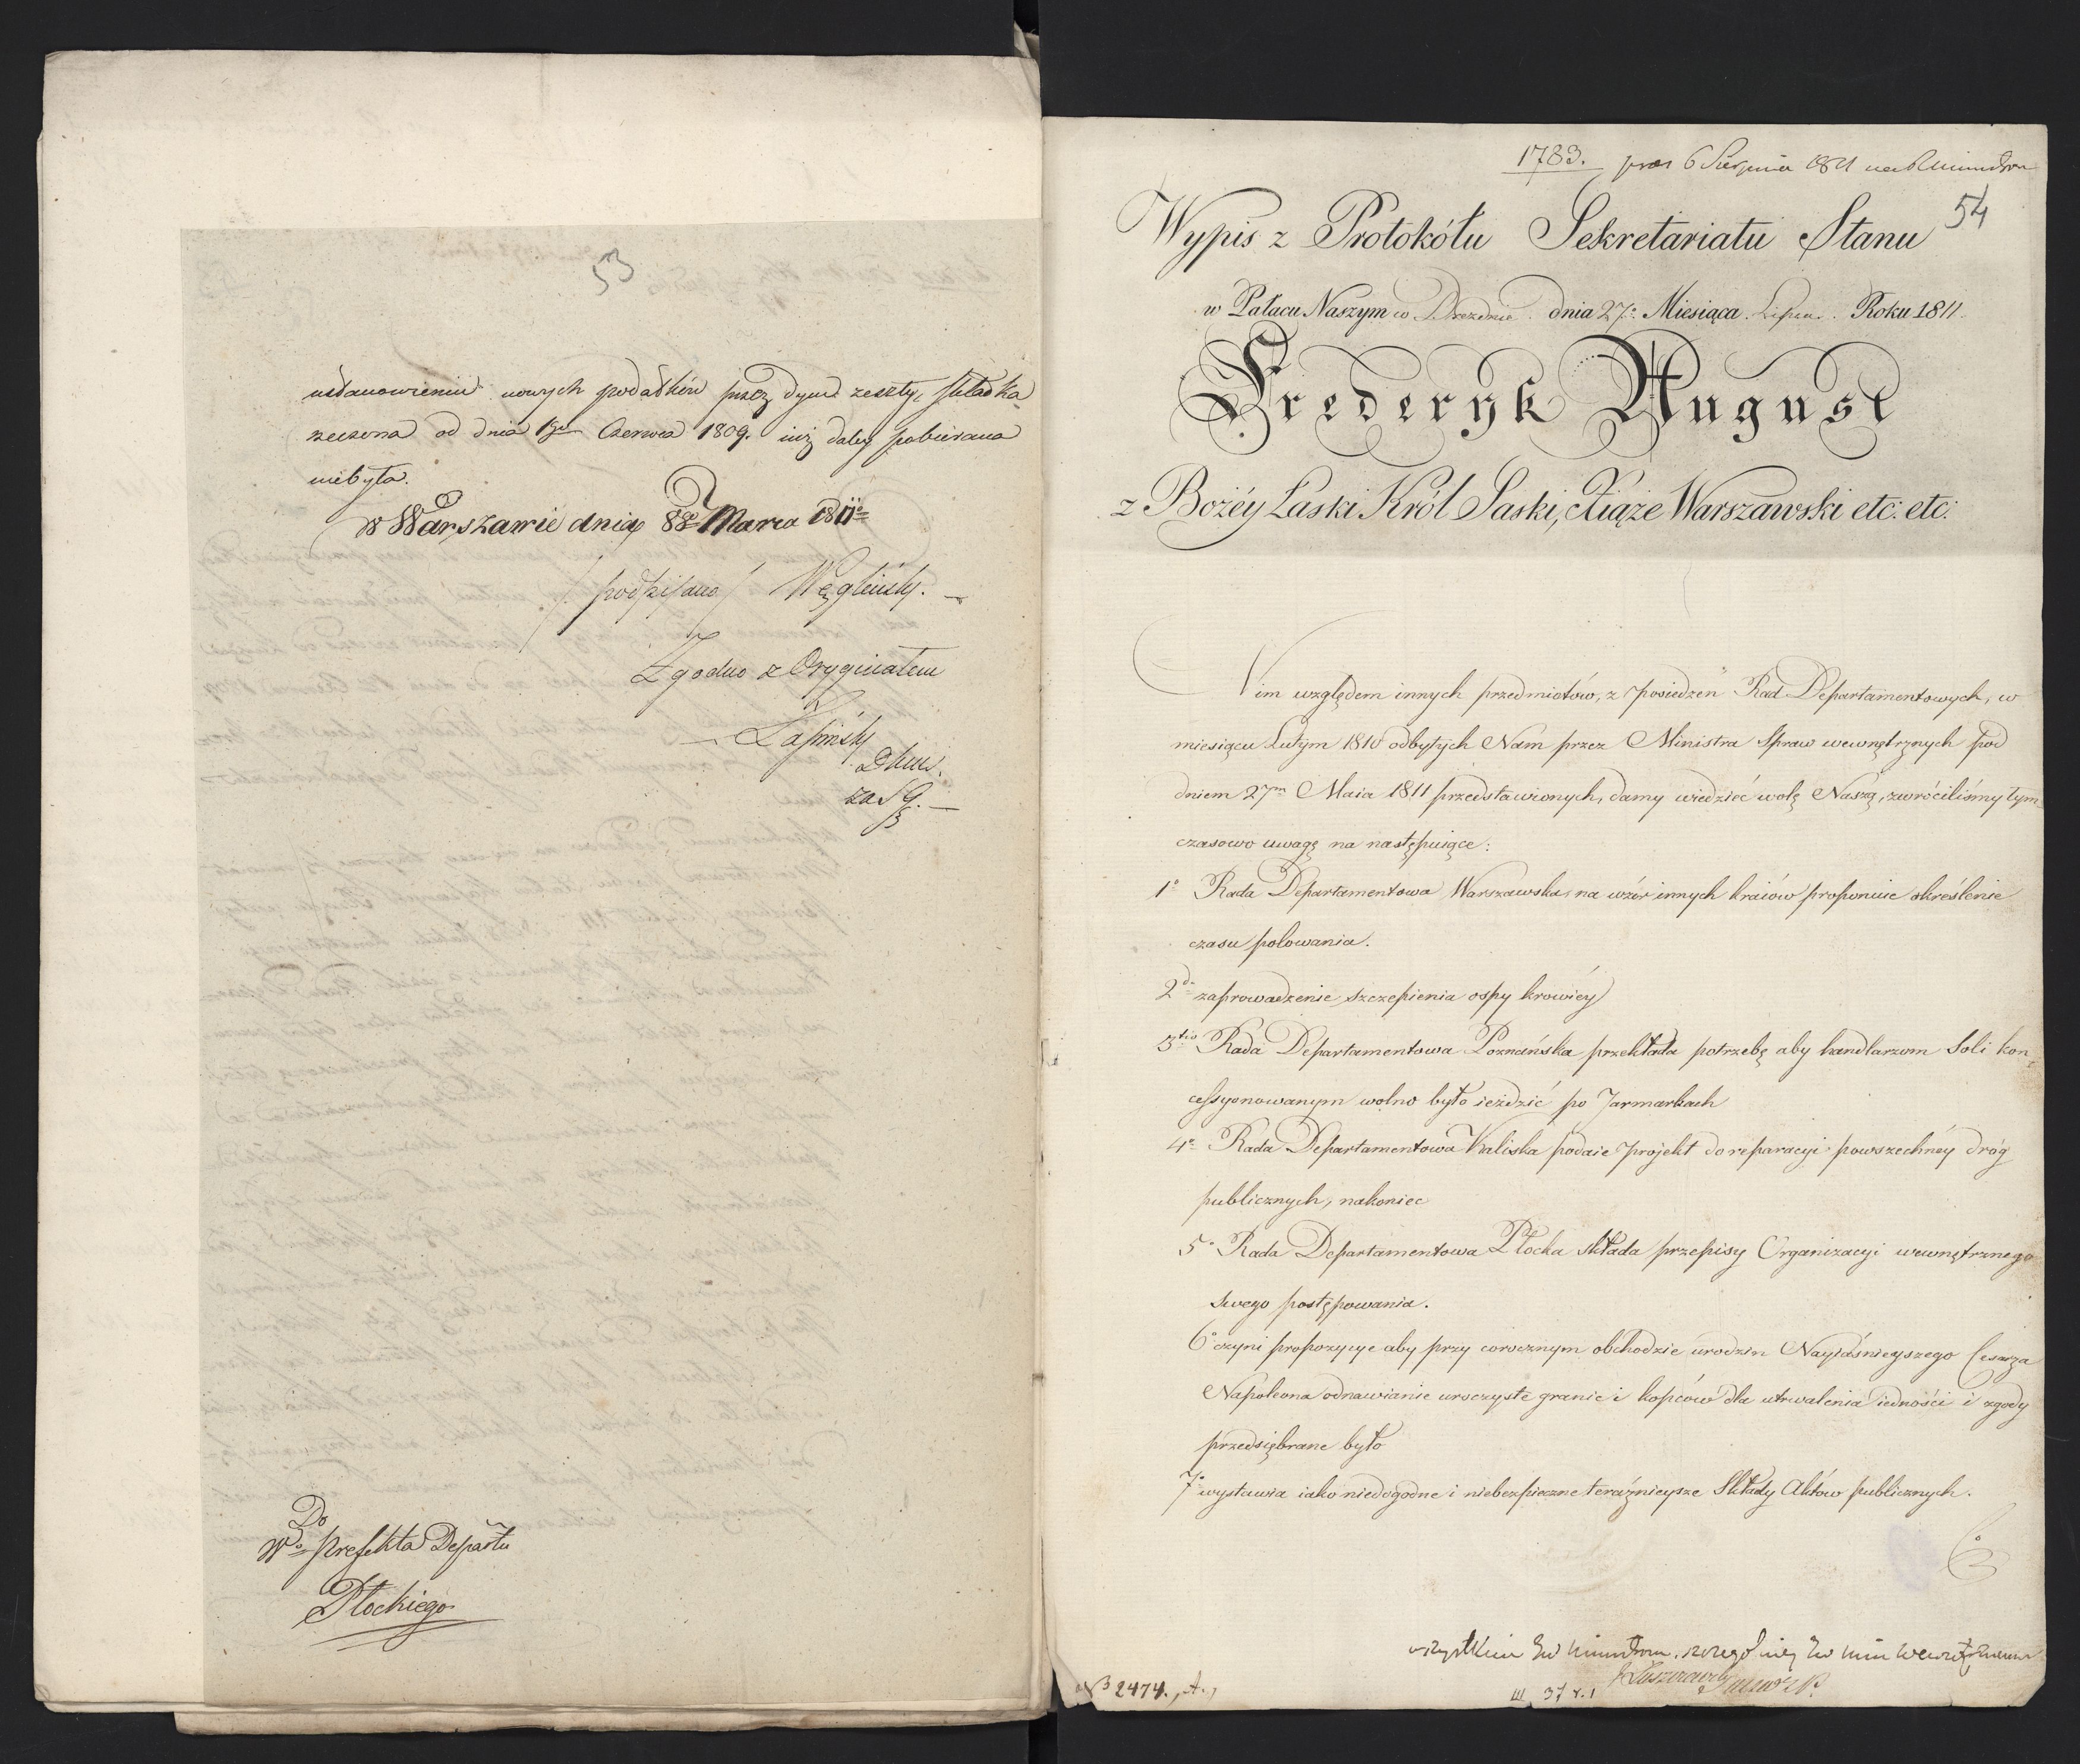 53
ustanowieniu nowych podatków przez dym zeszły, składka
rzeczona od dnia 1go Czerwca 1809. iuż daley pobierana
niebyła.
W Warszawie dnia 8go Marca 1811o
/podpisano/ Węgliński.
Zgodno z Oryginałem
Łapiński
za SG.
Do
Wo Prefekta Departu
Płockiego
1783. prez 6 Sierpnia 1811
54
Wypis z Protokółu Sekretariatu Stanu
w Pałacu Naszym w Dreznie dnia 27o Miesiąca Lipca Roku 1811.
Frederyk August
z Bożéy Łaski Król Saski, Xiąże Warszawski etc: etc:
Nim względem innych przedmiotów, z posiedzeń Rad Departamentowych, w
miesiącu Lutym 1810 odbytych Nam przez Ministra Spraw wewnętrznych pod
dniem 27m Maia 1811 przedstawionych, damy wiedzieć wolę Naszą, zwróciliśmy tym
czasowo uwagę na następuiące:
1o Rada Departamentowa Warszawska na wzór innych kraiów proponuie określenie
czasu polowania.
2do zaprowadzenie szczepienia ospy krowiéy
3tio Rada Departamentowa Poznańska przekłada potrzebę aby handlarzom Soli kon
cessyonowanym wolno było ieździć po Jarmarkach
4o Rada Departamentowa Kaliska podaie projekt do reparacyi powszechnéy dróg
publicznych, nakoniec
5o Rada Departamentowa Płocka składa przepisy Organizacyi wewnętrznego
swego postępowania.
6o czyni propozycye aby przy corocznym obchodzie urodzin Nayiaśnieyszego Cesarza
Napoleona odnawianie uroczyste granic i kopców dla utrwalenia iedności i zgody
przedsiębrane było
7o wystawia iako niedogodne i niebezpieczne teraźnieysze Składy Aktów publicznych.
wszystkim
2474., A.,
37